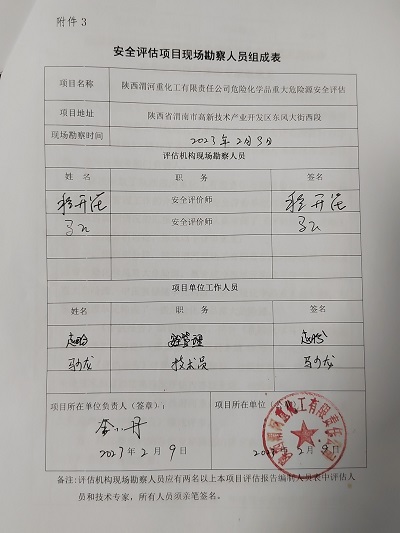 附件 3
安全评估项目现场勘察人员组成表
项目名称 陕西渭河重化工有限责任公司危险化学品重大危险源安全评估
项目地址 陕西省渭南市高新技术产业开发区东风大街西段
现场勘察时间 2023年2月9日
评估机构现场勘察人员
姓 名 职 务 签名
安全评价师
安全评价师
项目单位工作人员
姓名 职 务 签名
技术员
项目所在单位负责人（签章）： 项目所在单位
2023年2月9日 2月9日
备注:评估机构现场勘察人员应有两名以上本项目评估报告编制人员表中评估人
员和技术专家，所有人员须亲笔签名。